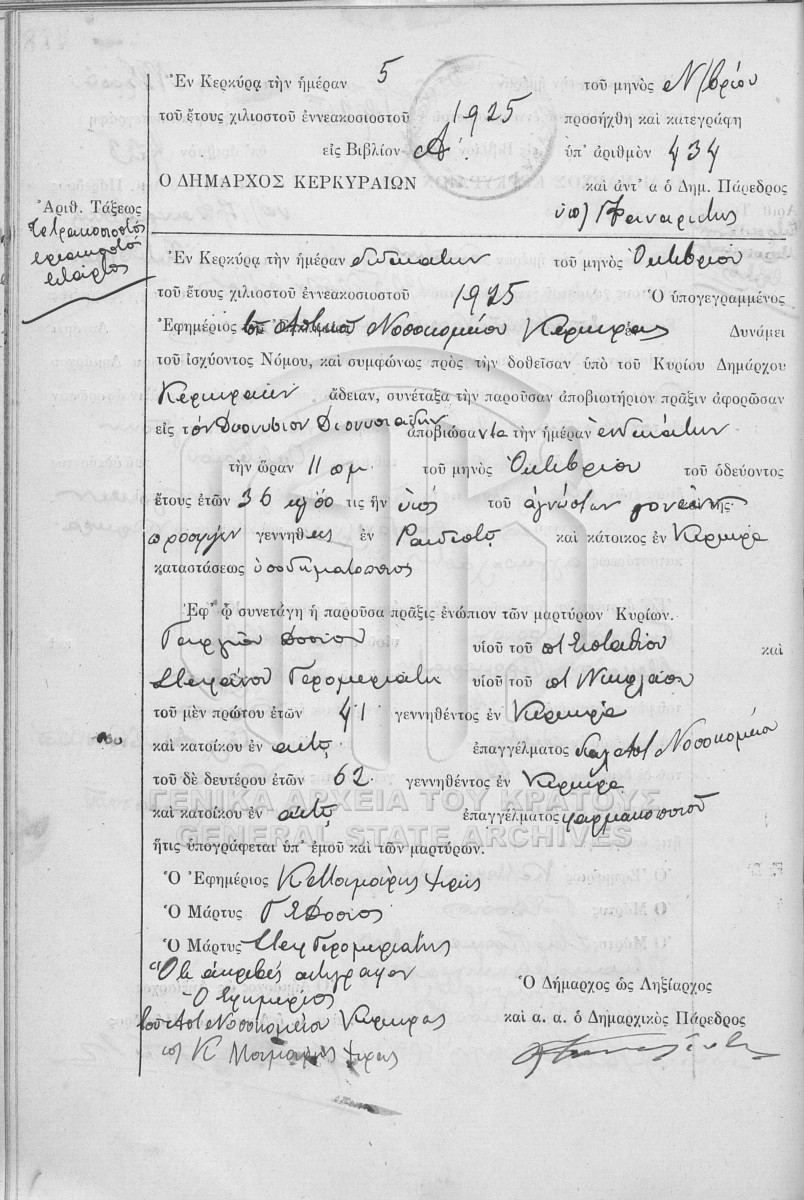 Ἐν Κερκύρᾳ τὴν ἡμέραν 5 τοῦ μηνὸς Ν/βρίου
τοῦ ἔτους χιλιοστοῦ ἐννεακοσιοστοῦ 1925 προσήχθη καὶ κατεγράφη
εἰς Βιβλίον Α΄. ὑπ' ἀριθμὸν 434
Ο ΔΗΜΑΡΧΟΣ ΚΕΡΚΥΡΑΙΩΝ καὶ ἀντ' α ὁ Δημ. Πάρεδρος
Ἀριθ. Τάξεως
τετρακοσιοστὸς
τριακοστὸς
τέταρτος
Ἐν Κερκύρᾳ τὴν ἡμέραν ἑνδεκάτην τοῦ μηνὸς Ὀκτωβρίου
τοῦ ἔτους χιλιοστοῦ ἐννεακοσιοστοῦ 1925 Ὁ ὑπογεγραμμένος
Ἐφημέριος τοῦ Ἀστικοῦ Νοσοκομείου Κερκύρας Δυνάμει
τοῦ ἰσχύοντος Νόμου, καὶ συμφώνως πρὸς τὴν δοθεῖσαν ὑπὸ τοῦ Κυρίου Δημάρχου
Κερκυραίων ἄδειαν, συνέταξα τὴν παροῦσαν ἀποβιωτήριον πρᾶξιν ἀφορῶσαν
εἰς τὸν Διονύσιον Διονυσιάδην ἀποβιώσαντα τὴν ἡμέραν ἑνδεκάτην
τὴν ὥραν 11 πμ. τοῦ μηνὸς Ὀκτωβρίου τοῦ ὁδεύοντος
ἔτους ἐτῶν 36 τις ἦν υἱὸς τοῦ ἀγνώστων γονέων
πρόσφυξ γεννηθεὶς ἐν Ραιδεστῷ καὶ κάτοικος ἐν Κερκύρᾳ
καταστάσεως ὑποδηματοποιὸς
Ἐφ' ᾧ συνετάγη ἡ παροῦσα πρᾶξις ἐνώπιον τῶν μαρτύρων Κυρίων.
Γεωργίου Δοσίου υἱοῦ τοῦ ποτ Εὐσταθίου καὶ
Στεφάνου Γερομεριάτη υἱοῦ τοῦ ποτ Νικολάου
τοῦ μὲν πρώτου ἐτῶν 41 γεννηθέντος ἐν Κερκύρᾳ
καὶ κατοίκου ἐν αὐτῇ ἐπαγγέλματος Νοσοκομείου
τοῦ δὲ δευτέρου ἐτῶν 62 γεννηθέντος ἐν Κερκύρᾳ
ΓΕΝΙΚΑ ΑΡΧΕΙΑ ΤΟΥ ΚΡΑΤΟΥΣ
καὶ κατοίκου ἐν αὐτῇ ἐπαγγέλματος φαρμακοποιοῦ
GENERAL STATE ARCHIVES
ἥτις ὑπογράφεται ὑπ' ἐμοῦ καὶ τῶν μαρτύρων.
Ὁ Ἐφημέριος Κ Μομφάρης ἱερεὺς
Ὁ Μάρτυς Γ Ε Δόσιος
Ὁ Μάρτυς Στεφ Γερομεριάτης
Ὅτι ἀκριβὲς ἀντίγραφον
Ὁ Ἐφημέριος Ὁ Δήμαρχος ὡς Ληξίαρχος
τοῦ Ἀστ Νοσοκομείου Κερκύρας καὶ α. α. ὁ Δημαρχικὸς Πάρεδρος